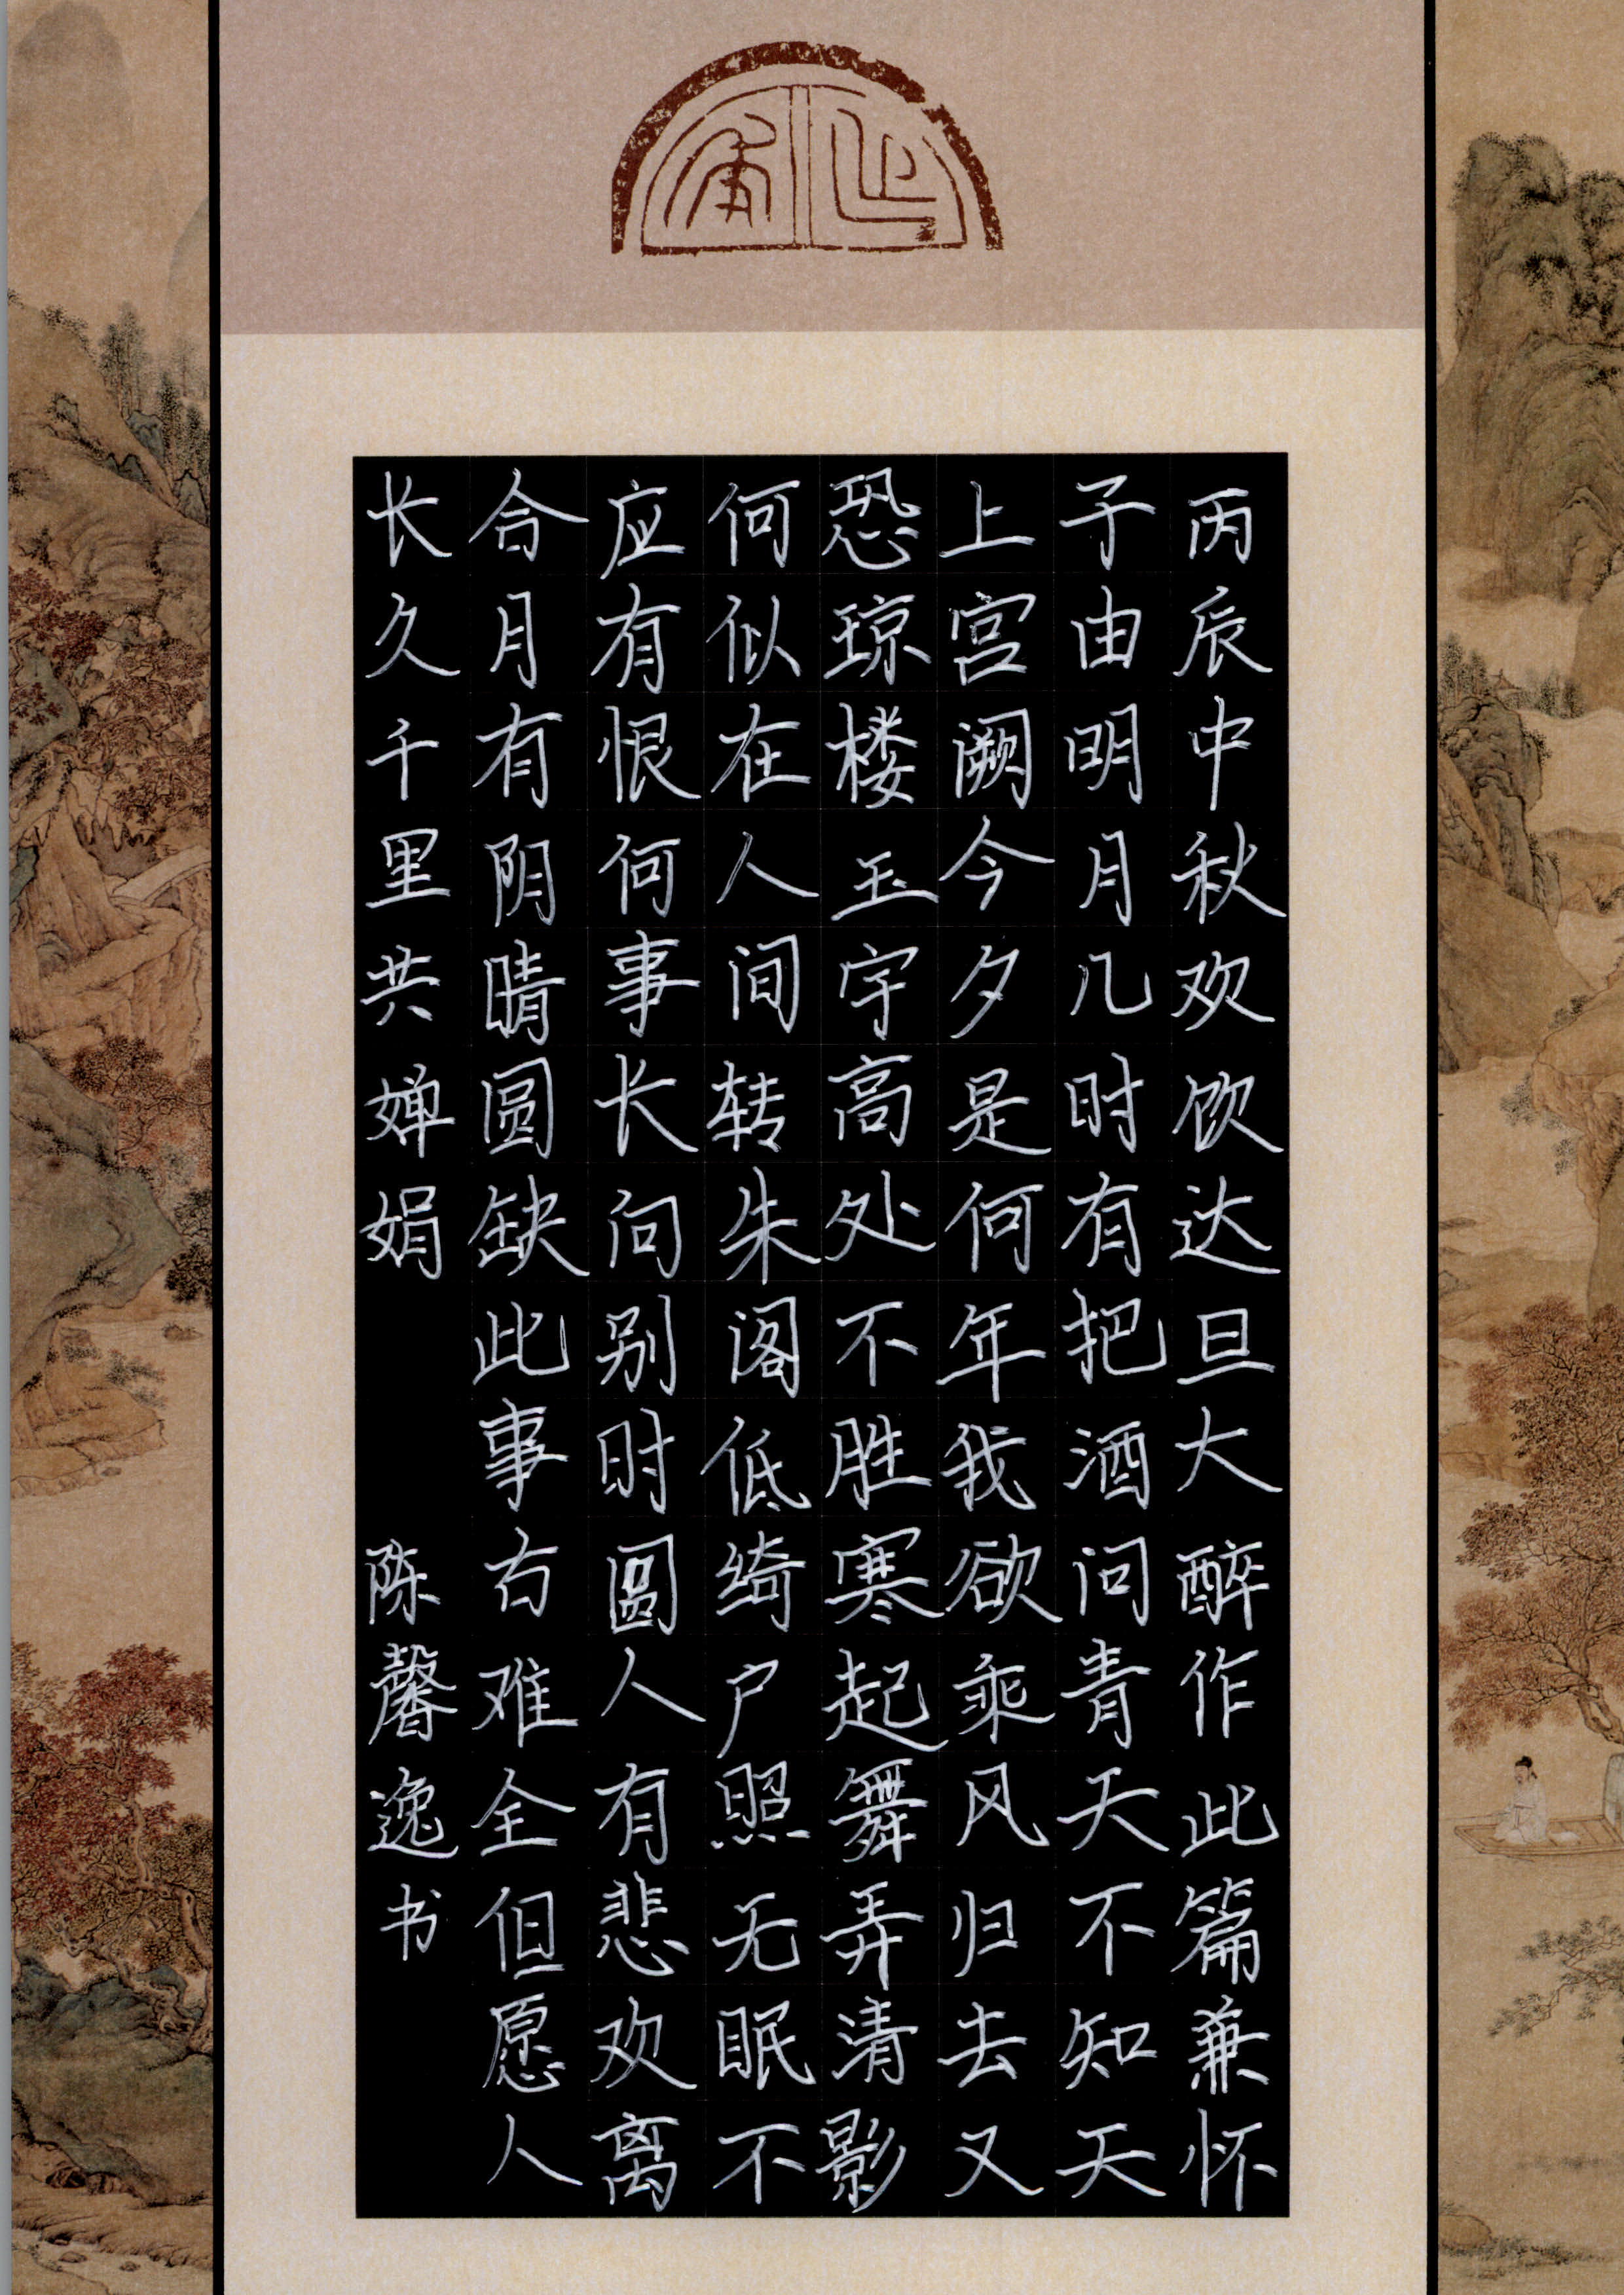 丙辰中秋欢饮达旦大醉作此篇兼怀
子由明月几时有把酒问青天不知天
上宫阙今夕是何年我欲乘风归去又
恐琼楼玉宇高处不胜寒起舞弄清影
何似在人间转朱阁低绮户照无眠不
应有恨何事长问别时圆人有悲欢离
合月有阴晴圆缺此事右难全但愿人
长久千里共婵娟 陈馨逸书